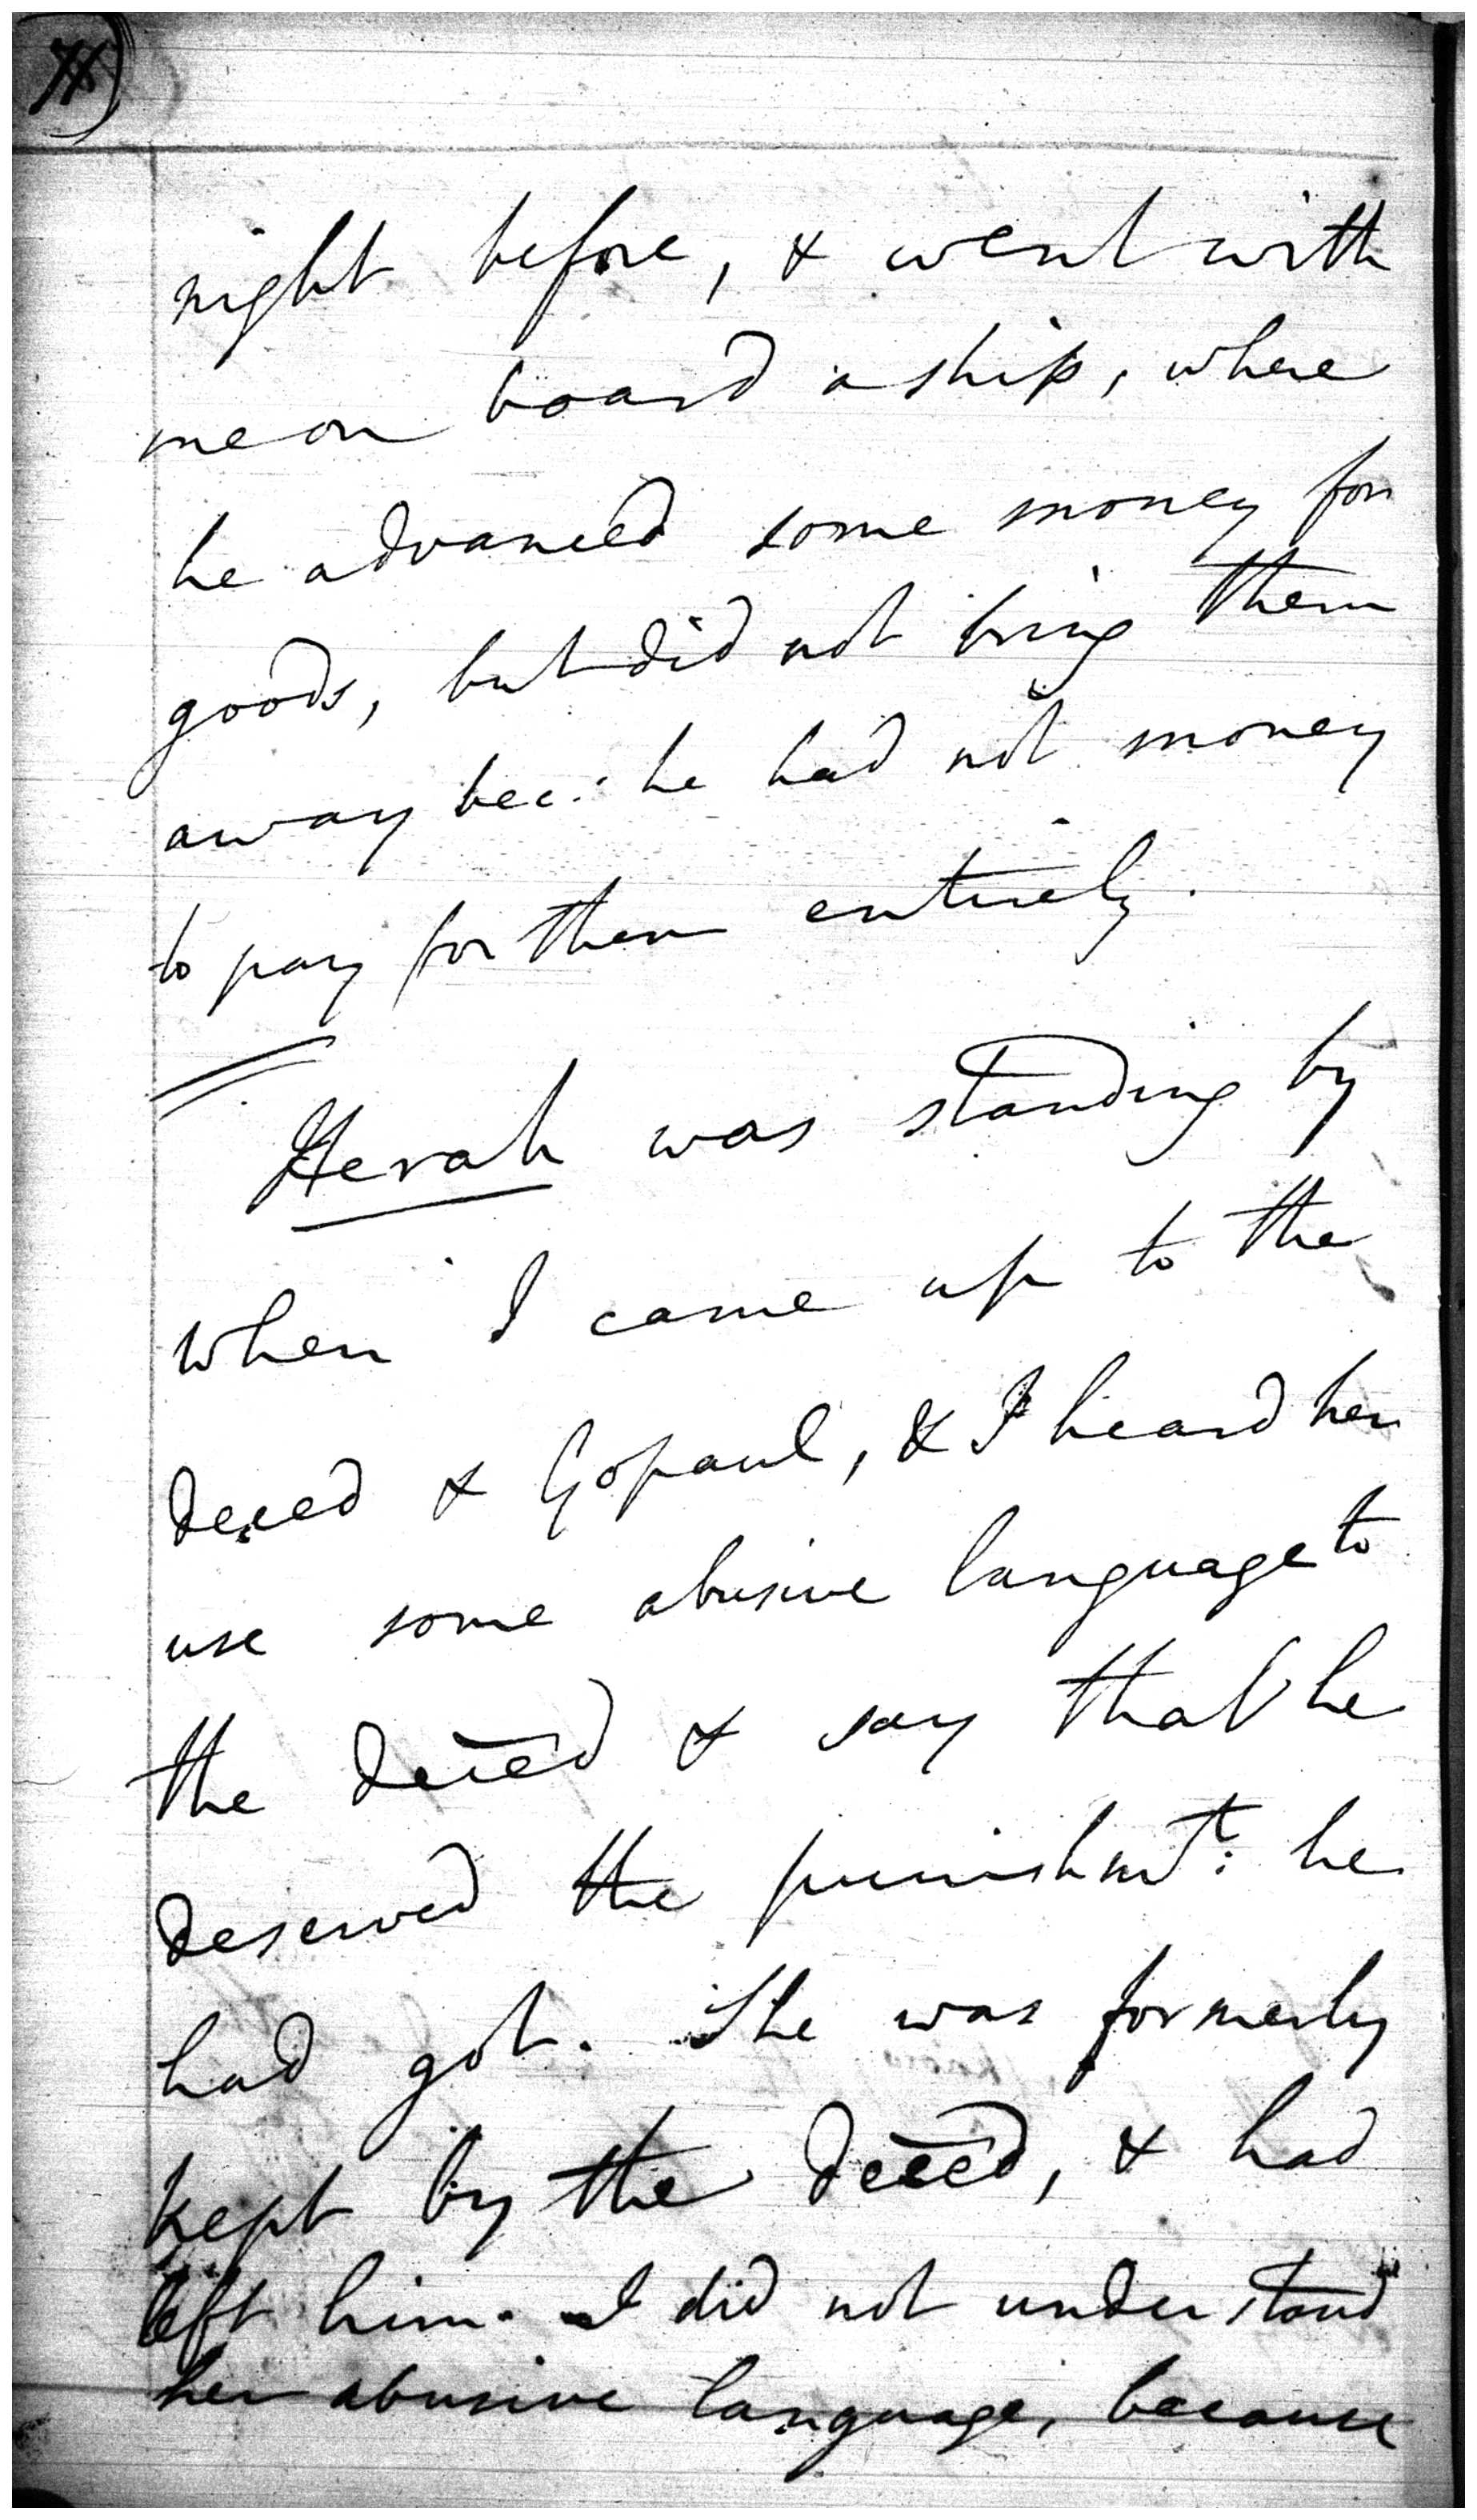 night before, & went with
me on board a ship, where
he advanced some money for
goods, but did not bring them
away bec: he had not money
to pay for them entirely.
Herah was standing by
when I came up to the
deced & Gopaul, & I heard her
use some abusive language to
the deced & say that he
deserved the punishmt: he
had got. She was formerly
kept by the deced, & had
left him. I did not understand
her abusive language, because